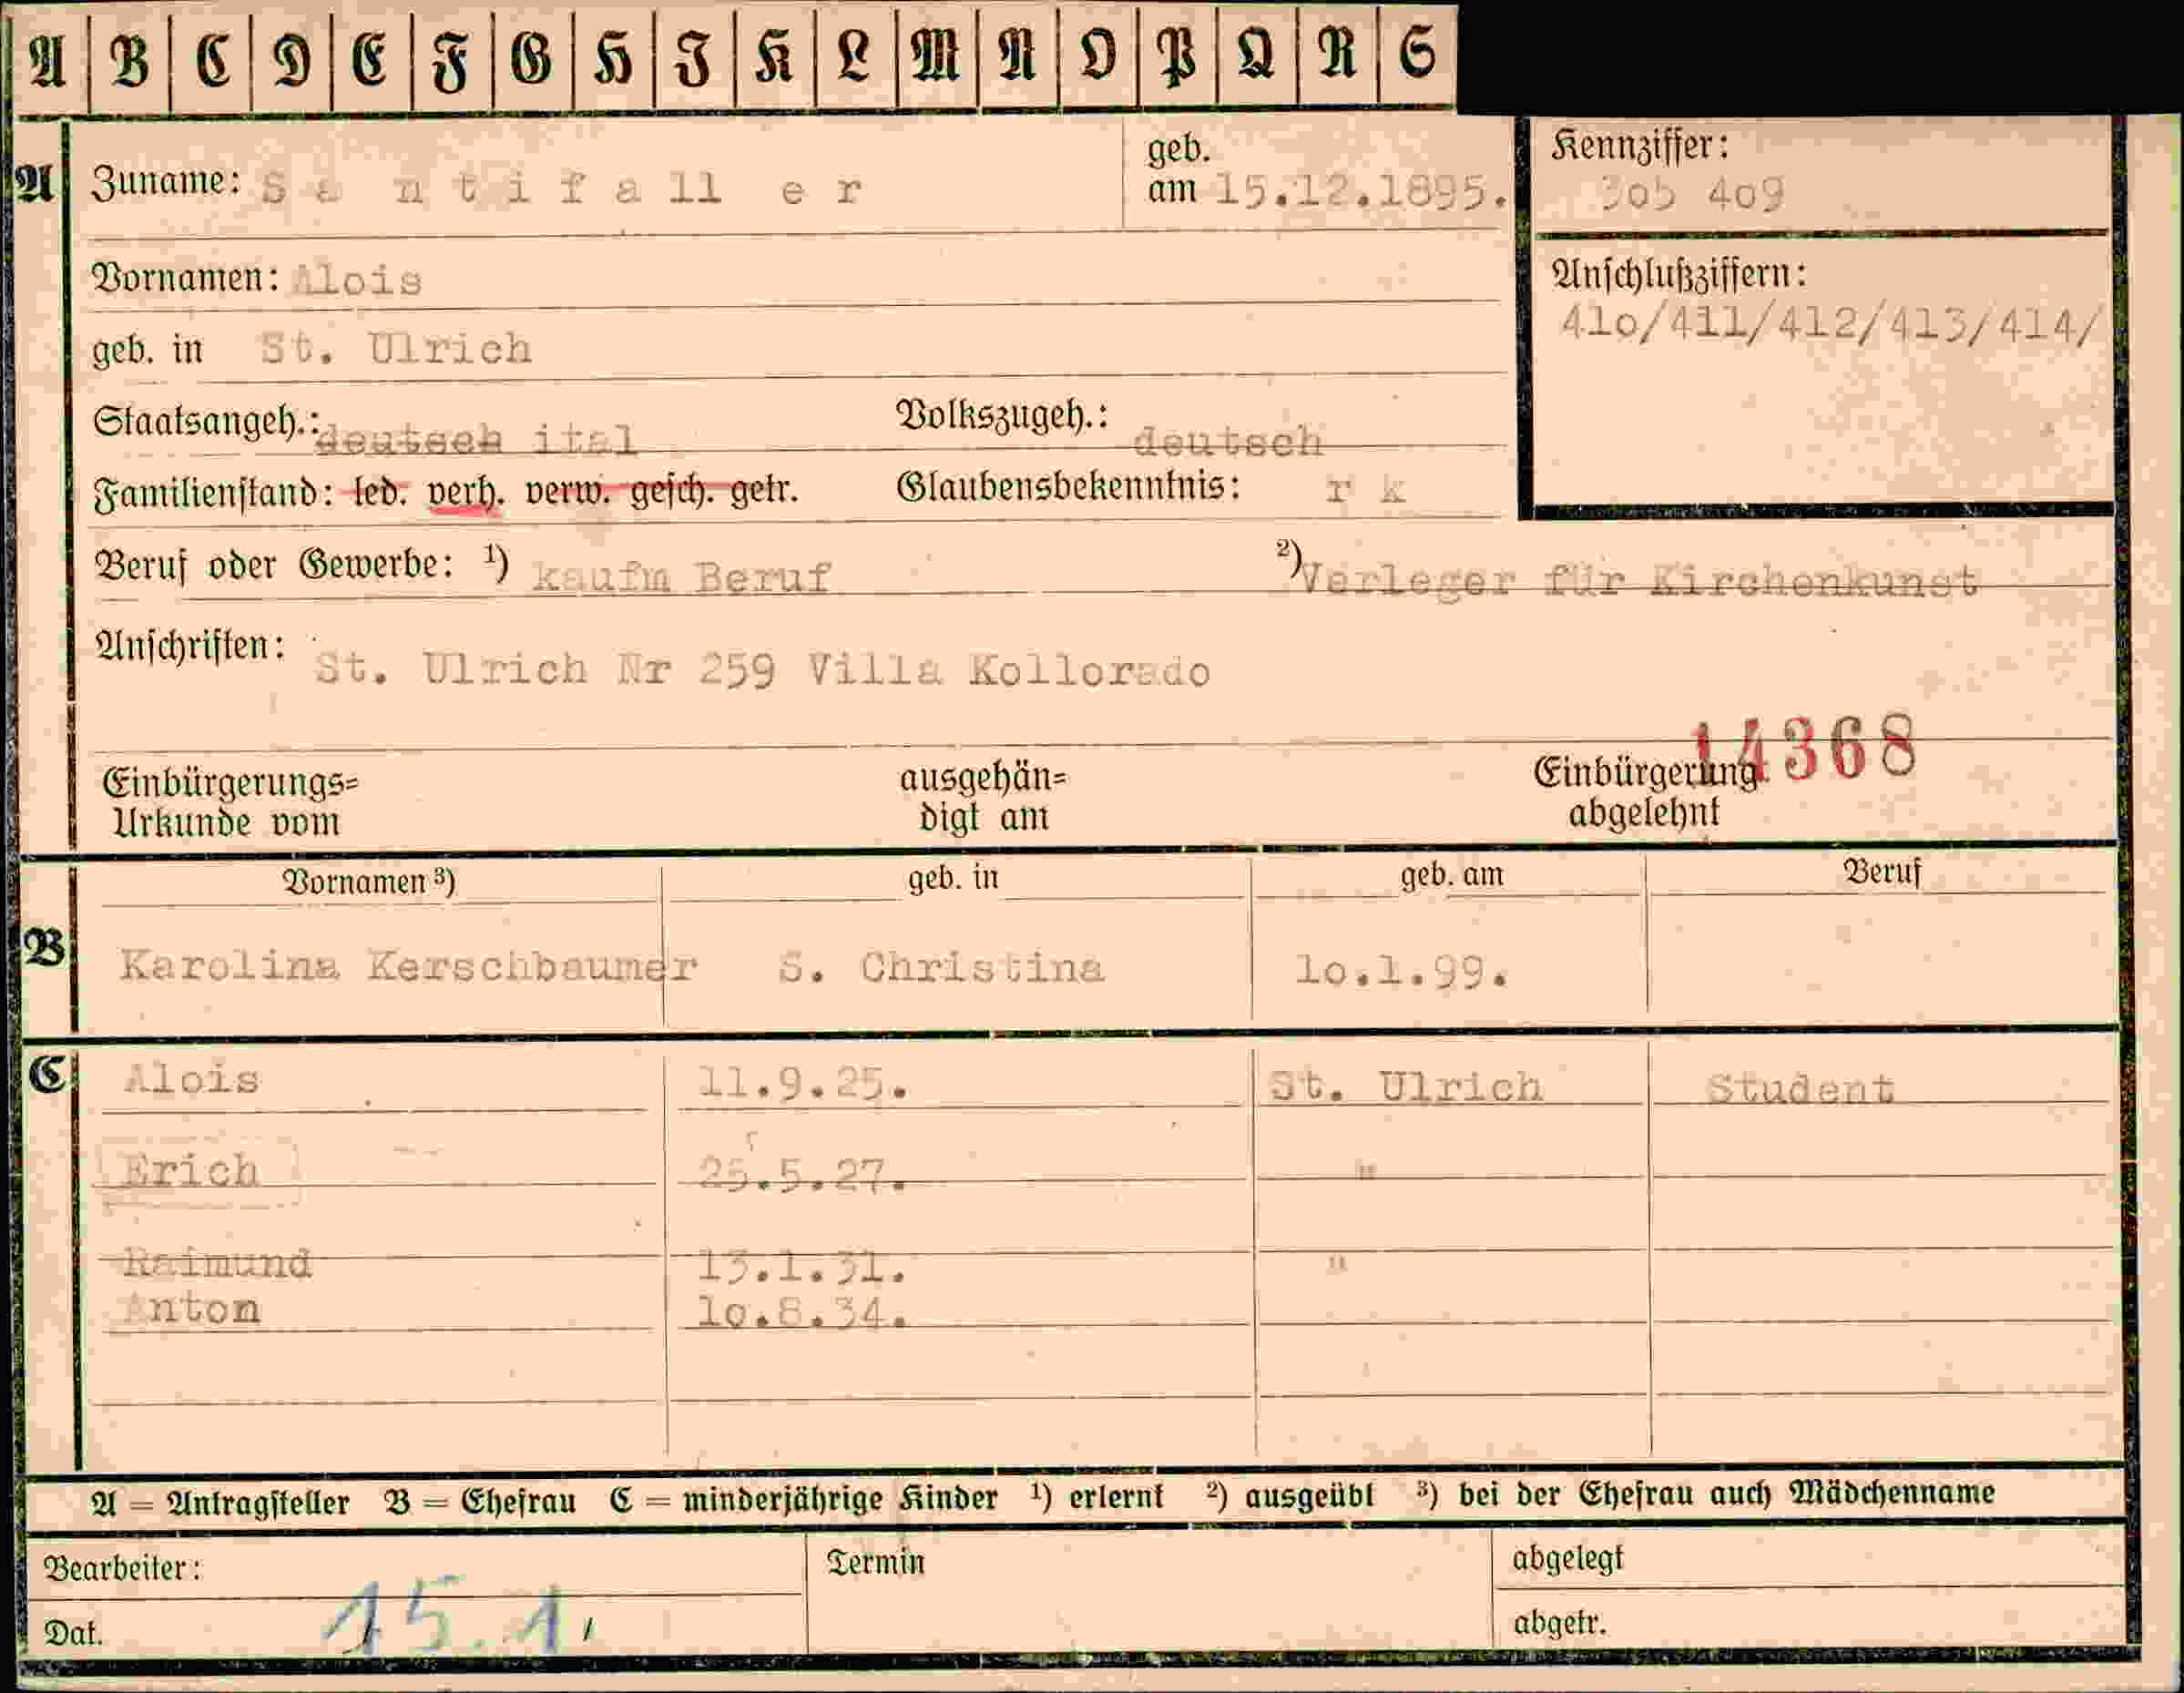 A B C D E F G H I K L M N O P Q R S
A Zuname: S a n t i f a ll e r geb. am 15.12.1895. Kennziffer: 305 4o9
Vornamen: Alois Anschlußziffern:
41o/411/412/413/414/
geb. in St. Ulrich
Staatsangeh.: deutsch ital Volkszugeh.: deutsch
Familienstand: led. verh. verw. gesch. getr. Glaubensbekenntnis: r k
Beruf oder Gewerbe: ¹) kaufm Beruf ²) Verleger für Kirchenkunst
Anschriften: St. Ulrich Nr 259 Villa Kollorado
14368
Einbürgerungs= ausgehän= Einbürgerung
Urkunde vom digt am abgelehnt
Vornamen ³) geb. in geb. am Beruf
B Karolina Kerschbaumer S. Christina 1o.1.99.
C Alois 11.9.25. St. Ulrich Student
Erich 25.5.27. "
Raimund 13.1.31. "
Anton 1o.8.34.
A = Antragsteller B = Ehefrau C = minderjährige Kinder ¹) erlernt ²) ausgeübt ³) bei der Ehefrau auch Mädchenname
Bearbeiter: Termin abgelegt
Dat. 15.1. abgetr.